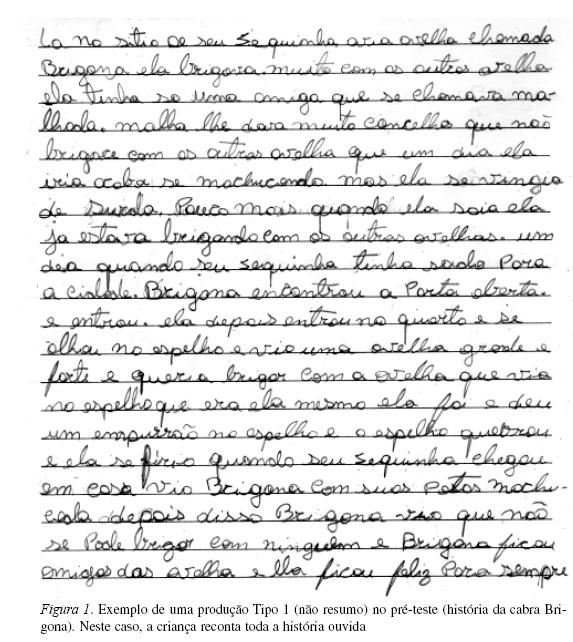 La no sitio de seu sequinha avia ovelha chamada
Brigona ela brigava. muito com as outras ovelha.
ela tinha so uma amiga que se chamava ma-
lhada. malha lhe dava muito concelhos que naõ
brigace com as outras ovelha que um dia ela
iria acaba se machucando. mas ela se vingia
de surda. Pouco mais quando ela saia ela
ja estava brigando com as outras ovelhas. um
dia quando seu sequinha tinha saido Para
a cidade. Brigona encontrou a Porta aberta.
e entrou. ela depois entrou no quarto e se
olhou no espelho e viu uma ovelha grade e
forte e queria brigar com a ovelha que via
no espelho que era ela mesmo ela foi e deu
um empurraõ no espelho e o espelho quebrou
e ela se firio quando seu sequinha chegou
em casa vio Brigona com suas patas machu-
cada depois disso Brigona viu que naõ
se Pode brigar com ninguem e Brigona ficou
amigas das ovelha e ella ficou feliz Para sempre
Figura 1. Exemplo de uma produção Tipo 1 (não resumo) no pré-teste (história da cabra Bri-
gona). Neste caso, a criança reconta toda a história ouvida